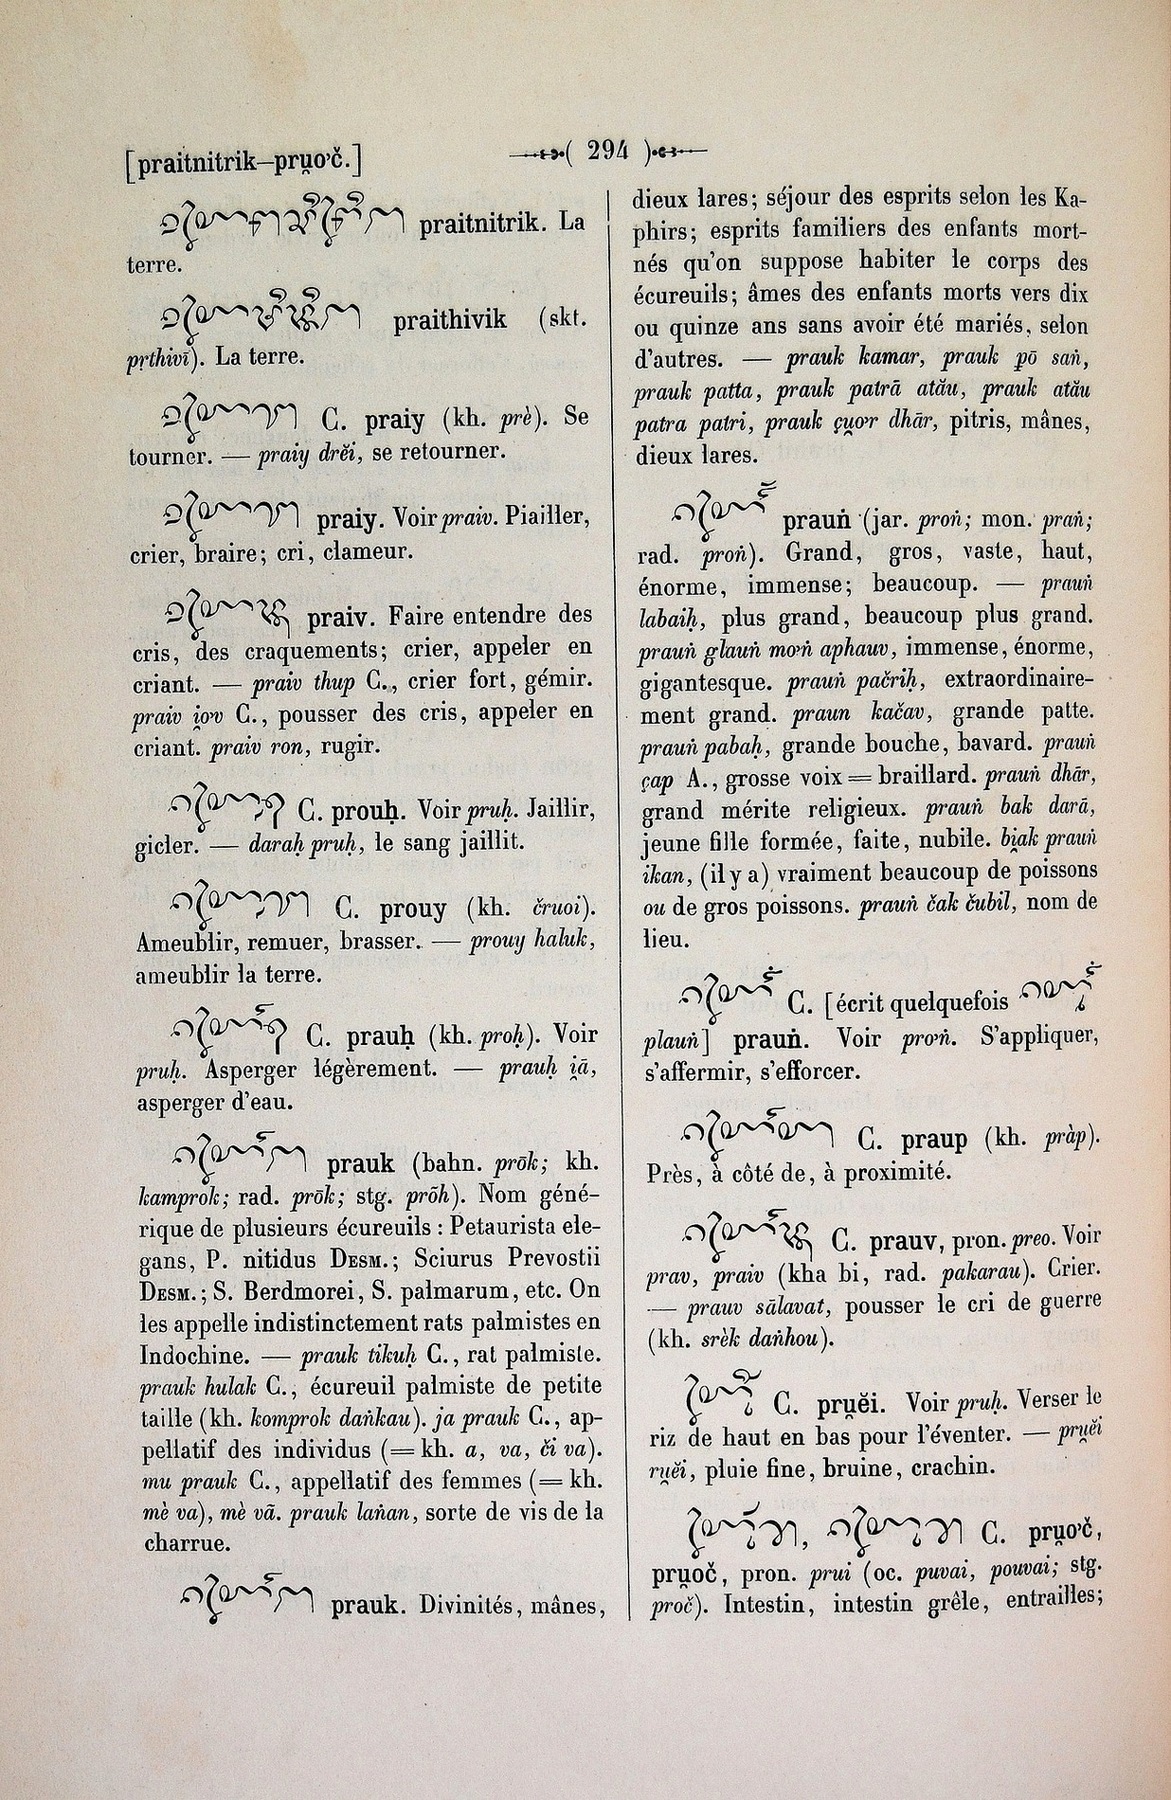 [praitnitrik–pru̯o’č.]
294
praitnitrik. La
terre.
praithivik (skt.
pṛthivī). La terre.
C. praiy (kh. prè). Se
tourner. — praiy drĕi, se retourner.
praiy. Voir praiv. Piailler,
crier, braire; cri, clameur.
praiv. Faire entendre des
cris, des craquements; crier, appeler en
criant. — praiv thup C., crier fort, gémir.
praiv i̯o’v C., pousser des cris, appeler en
criant. praiv ron, rugir.
C. prouḥ. Voir pruḥ. Jaillir,
gicler. — daraḥ pruḥ, le sang jaillit.
C. prouy (kh. čruoi).
Ameublir, remuer, brasser. — prouy haluk,
ameublir la terre.
C. prauḥ (kh. proḥ). Voir
pruḥ. Asperger légèrement. — prauḥ i̯ā,
asperger d’eau.
prauk (bahn. prōk; kh.
kamprok; rad. prōk; stg. prōh). Nom géné-
rique de plusieurs écureuils : Petaurista ele-
gans, P. nitidus Desm.; Sciurus Prevostii
Desm.; S. Berdmorei, S. palmarum, etc. On
les appelle indistinctement rats palmistes en
Indochine. — prauk tikuḥ C., rat palmiste.
prauk hulak C., écureuil palmiste de petite
taille (kh. komprok daṅkau). ja prauk C., ap-
pellatif des individus (= kh. a, va, či va).
mu prauk C., appellatif des femmes (= kh.
mè va), mè vā. prauk lañan, sorte de vis de la
charrue.
prauk. Divinités, mânes,
dieux lares; séjour des esprits selon les Ka-
phirs; esprits familiers des enfants mort-
nés qu’on suppose habiter le corps des
écureuils; âmes des enfants morts vers dix
ou quinze ans sans avoir été mariés, selon
d’autres. — prauk kamar, prauk pō saṅ,
prauk patta, prauk patrā atău, prauk atău
patra patri, prauk çu̯o’r dhār, pitris, mânes,
dieux lares.
prauṅ (jar. proṅ; mon. praṅ;
rad. proṅ). Grand, gros, vaste, haut,
énorme, immense; beaucoup. — prauṅ
labaiḥ, plus grand, beaucoup plus grand.
prauṅ glauṅ mo’ṅ aphauv, immense, énorme,
gigantesque. prauṅ pačriḥ, extraordinaire-
ment grand. praun kačav, grande patte.
prauṅ pabaḥ, grande bouche, bavard. prauṅ
çap A., grosse voix = braillard. prauṅ dhār,
grand mérite religieux. prauṅ bak darā,
jeune fille formée, faite, nubile. bi̯ak prauṅ
ikan, (il y a) vraiment beaucoup de poissons
ou de gros poissons. prauṅ čak čubil, nom de
lieu.
C. [écrit quelquefois
plauṅ] prauṅ. Voir pro’ṅ. S’appliquer,
s’affermir, s’efforcer.
C. praup (kh. pràp).
Près, à côté de, à proximité.
C. prauv, pron. preo. Voir
prav, praiv (kha bi, rad. pakarau). Crier.
— prauv sālavat, pousser le cri de guerre
(kh. srèk daṅhou).
C. pru̯ĕi. Voir pruḥ. Verser le
riz de haut en bas pour l’éventer. — pru̯ĕi
ru̯ĕi, pluie fine, bruine, crachin.
C. pru̯o’č,
pru̯oč, pron. prui (oc. puvai, pouvai; stg.
proč). Intestin, intestin grêle, entrailles;